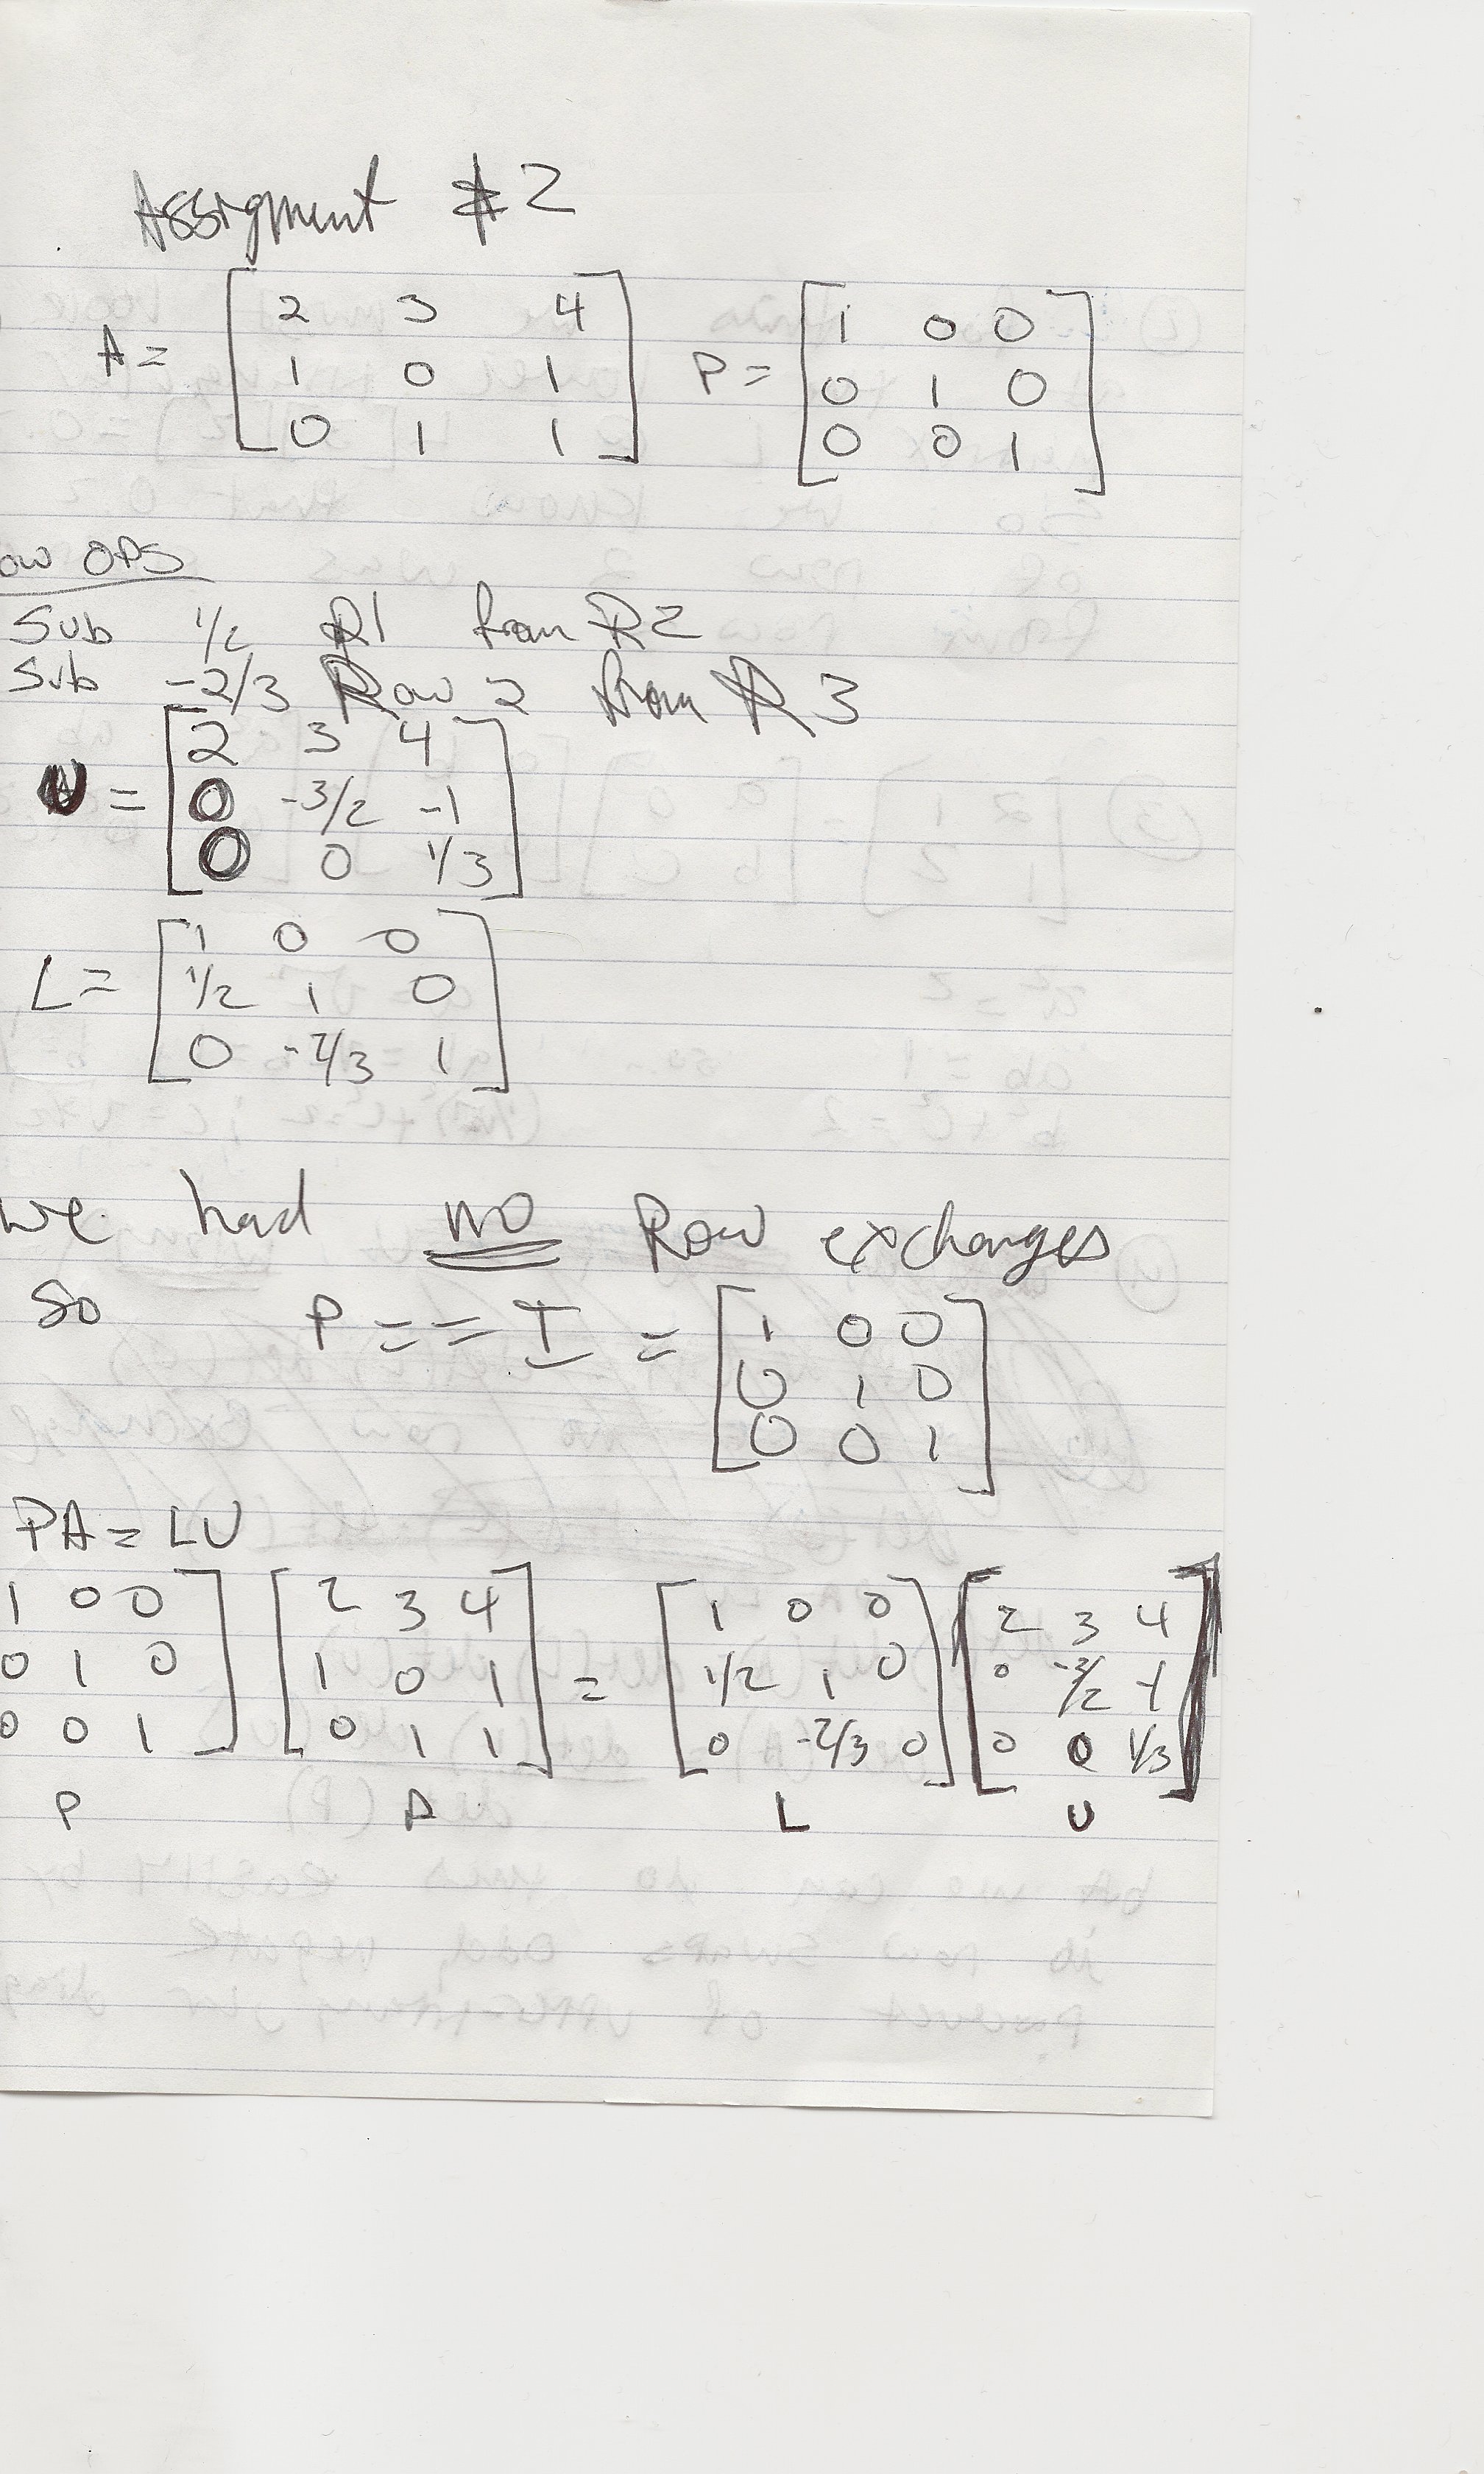 Assigment #2
A = [ 2 3 4 P = [ 1 0 0
1 0 1 0 1 0
0 1 1 ] 0 0 1 ]
ow OPS
Sub 1/2 R1 from R2
Sub -2/3 Row 2 from R3
U = [ 2 3 4
0 -3/2 -1
0 0 1/3 ]
L = [ 1 0 0
1/2 1 0
0 -2/3 1 ]
we had NO Row exchanges
So P == I = [ 1 0 0
0 1 0
0 0 1 ]
PA = LU
1 0 0 ] [ 2 3 4 ] = [ 1 0 0 ] [ 2 3 4 ]
0 1 0 1 0 1 1/2 1 0 0 -3/2 -1
0 0 1 0 1 1 0 -2/3 0 0 0 1/3
P A L U